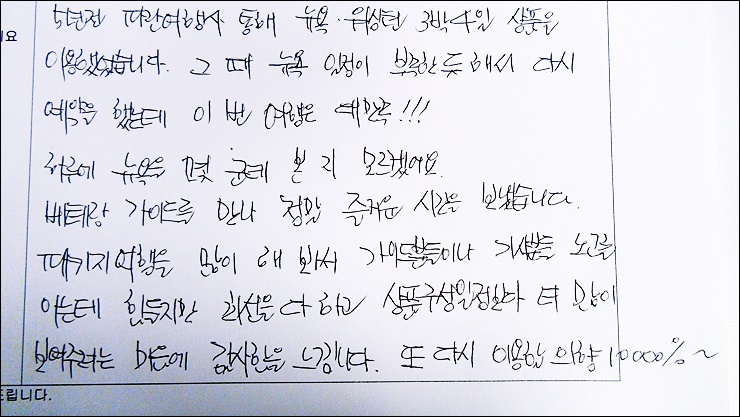 5년전 따간여행사 통해 뉴욕·워싱턴 3박4일 상품을
이용했었습니다. 그 때 뉴욕 일정이 부족한 듯 해서 다시
예약을 했는데 이 번 여행은 대만족!!!
하루에 뉴욕을 몇 군데 본 지 모르겠어요.
베테랑 가이드를 만나 정말 즐거운 시간을 보냈습니다.
패키지여행을 많이 해 봐서 가이드분들이나 기사분들 노고를
아는데 힘들지만 최선을 다 하고 상품구성일정보다 더 많이
보여주려는 마음에 감사함을 느낍니다. 또 다시 이용할 의향 10000%~
드립니다.